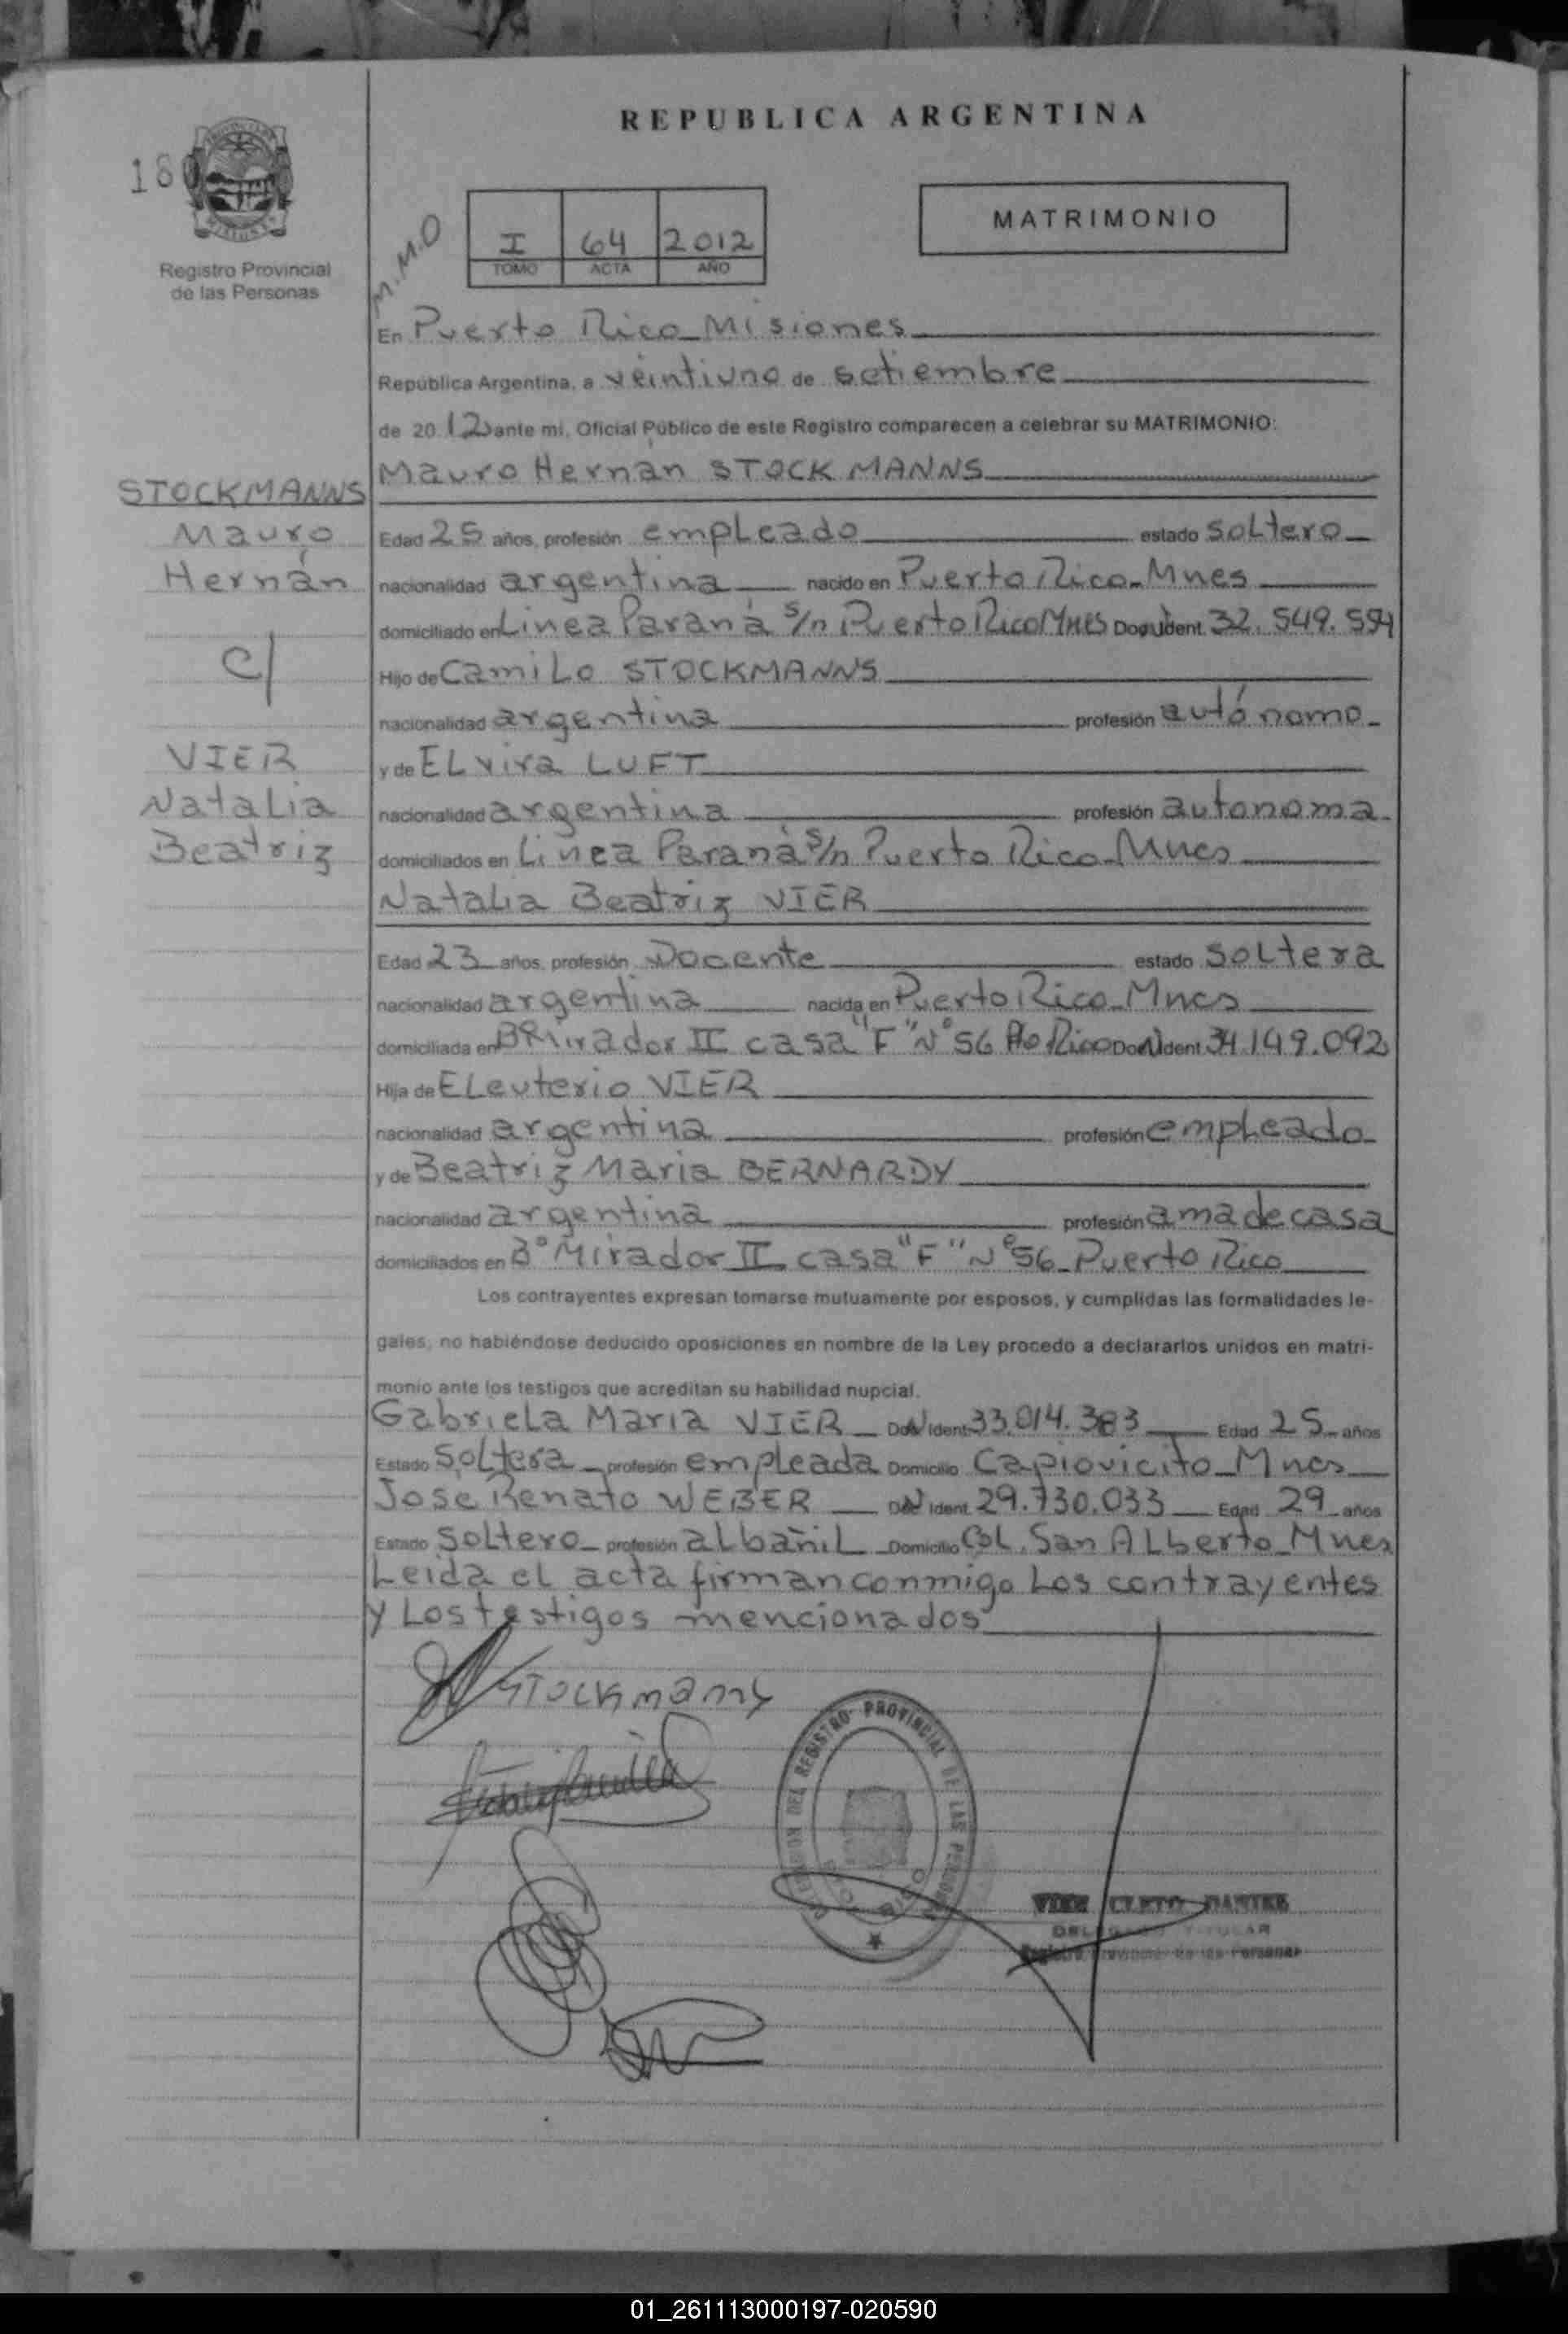 REPUBLICA ARGENTINA
180
Registro Provincial
de las Personas
M.M.O
I 64 2012
TOMO ACTA AÑO
MATRIMONIO
En Puerto Rico - Misiones
República Argentina, a veintiuno de setiembre
de 2012 ante mi, Oficial Público de este Registro comparecen a celebrar su MATRIMONIO:
Mauro Hernán STOCKMANNS
STOCKMANNS
Mauro
Hernán
c/
VIER
Natalia
Beatriz
Edad 25 años, profesión empleado estado soltero
nacionalidad argentina nacido en Puerto Rico - Mnes
domiciliado en Linea Paraná s/n Puerto Rico Mnes Doc. Ident. 32.549.594
Hijo de Camilo STOCKMANNS
nacionalidad argentina profesión autónomo
y de Elvira LUFT
nacionalidad argentina profesión autonoma
domiciliados en Linea Paraná s/n Puerto Rico - Mnes
Natalia Beatriz VIER
Edad 23 años, profesión Docente estado soltera
nacionalidad argentina nacida en Puerto Rico - Mnes
domiciliada en Bº Mirador II casa "F" Nº 56 Pto Rico Ident. 34.149.092
Hija de Eleuterio VIER
nacionalidad argentina profesión empleado
y de Beatriz Maria BERNARDY
nacionalidad argentina profesión ama de casa
domiciliados en Bº Mirador II casa "F" Nº 56 - Puerto Rico
Los contrayentes expresan tomarse mutuamente por esposos, y cumplidas las formalidades le-
gales, no habiéndose deducido oposiciones en nombre de la Ley procedo a declararlos unidos en matri-
monio ante los testigos que acreditan su habilidad nupcial.
Gabriela Maria VIER Ident. 33.014.383 Edad 25 años
Estado soltera profesión empleada Domicilio Capiovicito - Mnes
Jose Renato WEBER Ident. 29.730.033 Edad 29 años
Estado soltero profesión albañil Domicilio Col. San Alberto - Mnes
Leida el acta firman conmigo los contrayentes
y los testigos mencionados
Stockmanns
DELEGACION DEL REGISTRO PROVINCIAL DE LAS PERSONAS
VIER CLETO DANIEL
DELEGADO TITULAR
Registro Provincial de las Personas
01_261113000197-020590